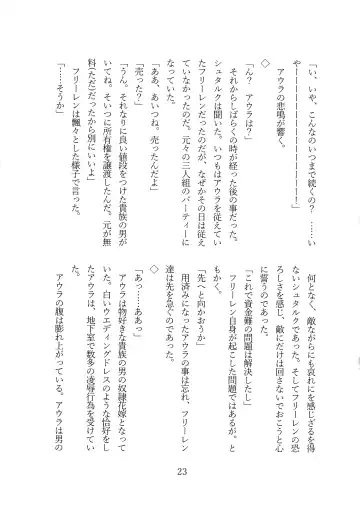 「い、いや、こんなのいつまで続くの？……い
やーーーーーーーーーーーーーーーー！」
アウラの悲鳴が響く。
◇
「ん？　アウラは？」
それからしばらくの時が経った後の事だった。
シュタルクは聞いた。いつもはアウラを従えてい
たフリーレンだったのだが、なぜかその日は従え
ていなかったのだ。元々の三人組のパーティーに
なっていた。
「ああ、あいつね。売ったんだよ」
「売った？」
「うん、それなりに良い値段をつけた貴族の男が
いてね。そいつに所有権を譲渡したんだ。元が無
料(ただ)だったから別にいいよ」
フリーレンは飄々とした様子で言った。
「……そうか」
何となく、敵ながらにも哀れにを感じざるを得
ないシュタルクであった。そしてフリーレンの恐
ろしさを感じ、敵にだけは回さないでおこうと心
に誓うのであった。
「これで資金難の問題は解決したし」
フリーレン自身が起こした問題ではあるが。と
もかく。
「先へと向かおうか」
用済みになったアウラの事は忘れ、フリーレン
達は先を急ぐのであった。
◇
「あっ……ああっ」
アウラは物好きな貴族の男の奴隷花嫁となって
いた。白いウエディングドレスのような恰好をし
たアウラは、地下室で数多の凌辱行為を受けてい
た。
アウラの腹は膨れ上がっている。アウラは男の
23